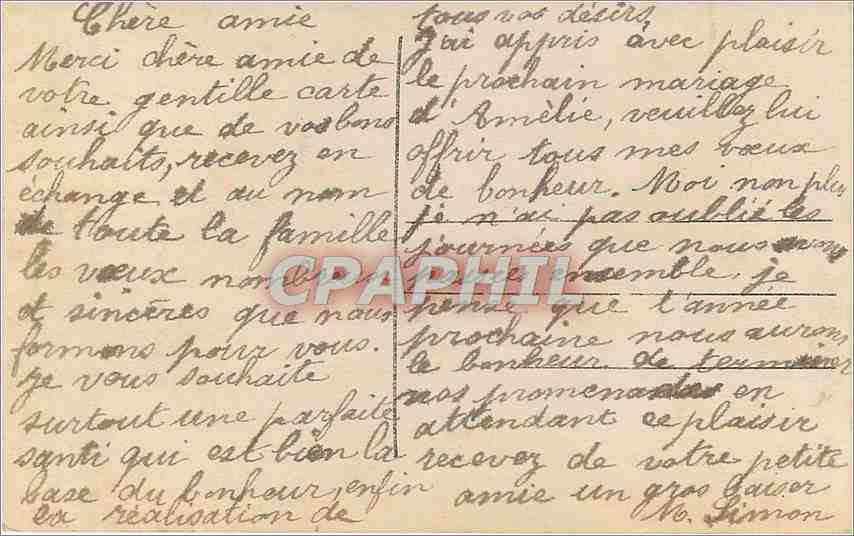 Chère amie
Merci chère amie de
votre gentille carte
ainsi que de vos bons
souhaits, recevez en
échange et au nom
de toute la famille
les vœux nombreux
et sincères que nous
formons pour vous.
Je vous souhaite
surtout une parfaite
santi qui est bien la
base du bonheur, enfin
la réalisation de
tous vos désirs,
J'ai appris avec plaisir
le prochain mariage
d'Amèlie, veuillez lui
offrir tous mes vœux
de bonheur. Moi non plus
je n'ai pas oublié les
journées que nous avons
passées ensemble, je
pense que l'année
prochaine nous aurons
le bonheur de terminer
nos promenades en
attendant ce plaisir
recevez de votre petite
amie un gros baiser
M. Simon
CPAPHIL